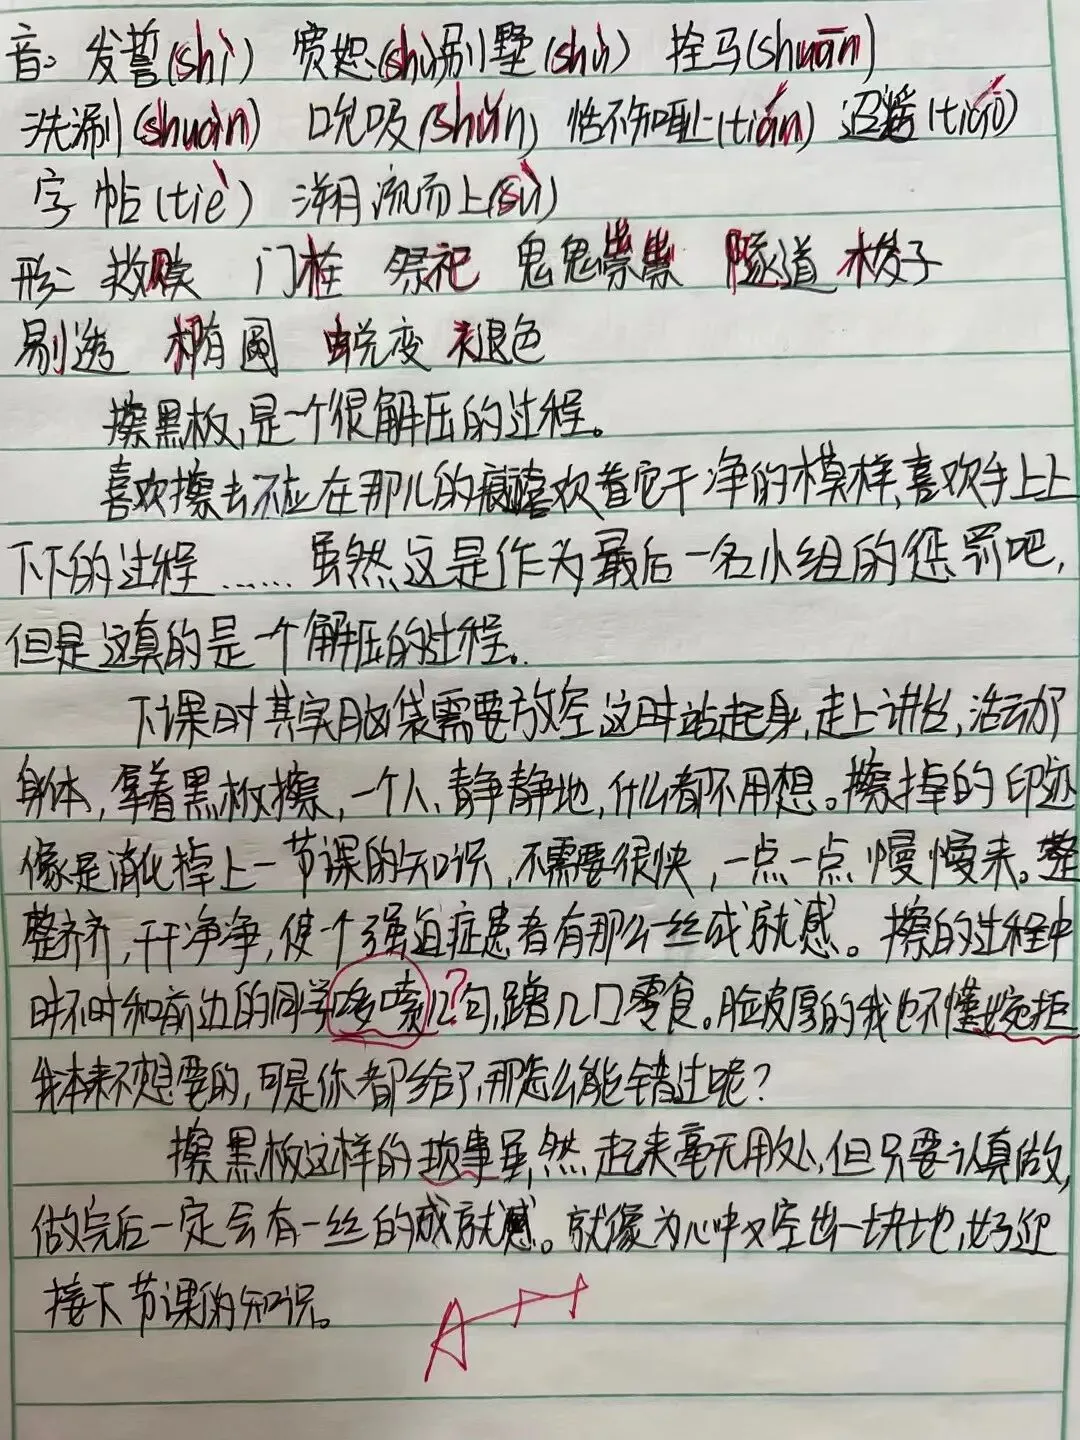 音: 发誓(shì) 宽恕(shù)别墅(shù) 拴马(shuān)
洗涮(shuàn) 吮吸(shǔn) 恬不知耻(tián) 迢遥(tiáo)
字帖(tiè) 溯流而上(sù)
形: 救赎 门栓 祭祀 鬼鬼祟祟 隧道 梭子
剔透 椭圆 蜕变 褪色
擦黑板,是一个很解压的过程。
喜欢擦去不应在那儿的痕,喜欢看它干净的模样,喜欢手上上
下下的过程……虽然这是作为最后一名小组的惩罚吧,
但是这真的是一个解压的过程。
下课时其实脑袋需要放空,这时站起身,走上讲台,活动
身体,拿着黑板擦,一个人,静静地,什么都不用想。擦掉的印迹
像是消化掉上一节课的知识,不需要很快,一点一点慢慢来。整
整齐齐,干干净净,使个强迫症患者有那么一丝成就感。擦的过程中
时不时和前边的同学哆嗦几句,蹭几口零食。脸皮厚的我也不懂婉拒
我本来不想要的,可是你都给了,那怎么能错过呢?
擦黑板这样的琐事虽然起来毫无用处,但只要认真做,
做完后一定会有一丝的成就感。就像为心中又空出一块地,好迎
接下节课的知识。
A++